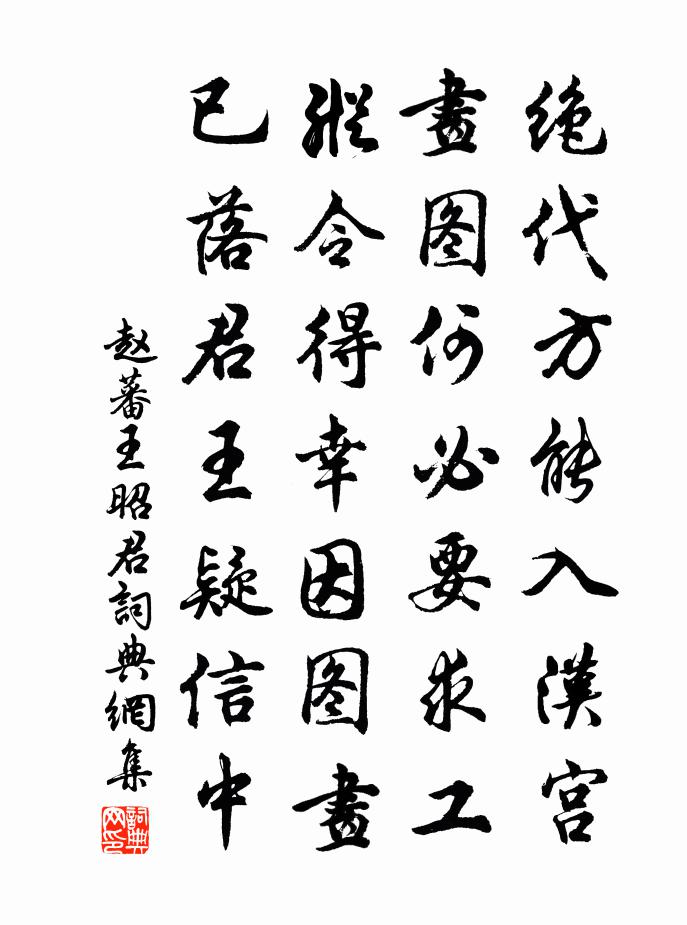 绝代方能入漢宫
畫图何必要求工
縱令得幸因图畫
已落君王疑信中
赵蕃王昭君詞典網集
詞典网印